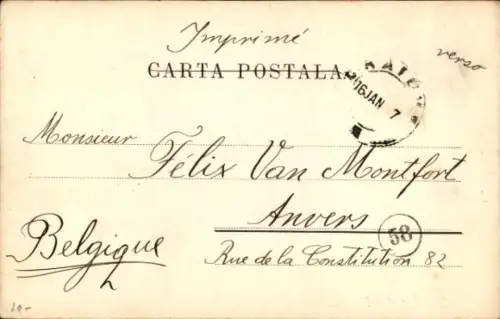 Imprimé
verso
CARTA POSTALA
16JAN 7
Monsieur
Félix Van Montfort
Anvers
58
Belgique
Rue de la Constitution 82
10-